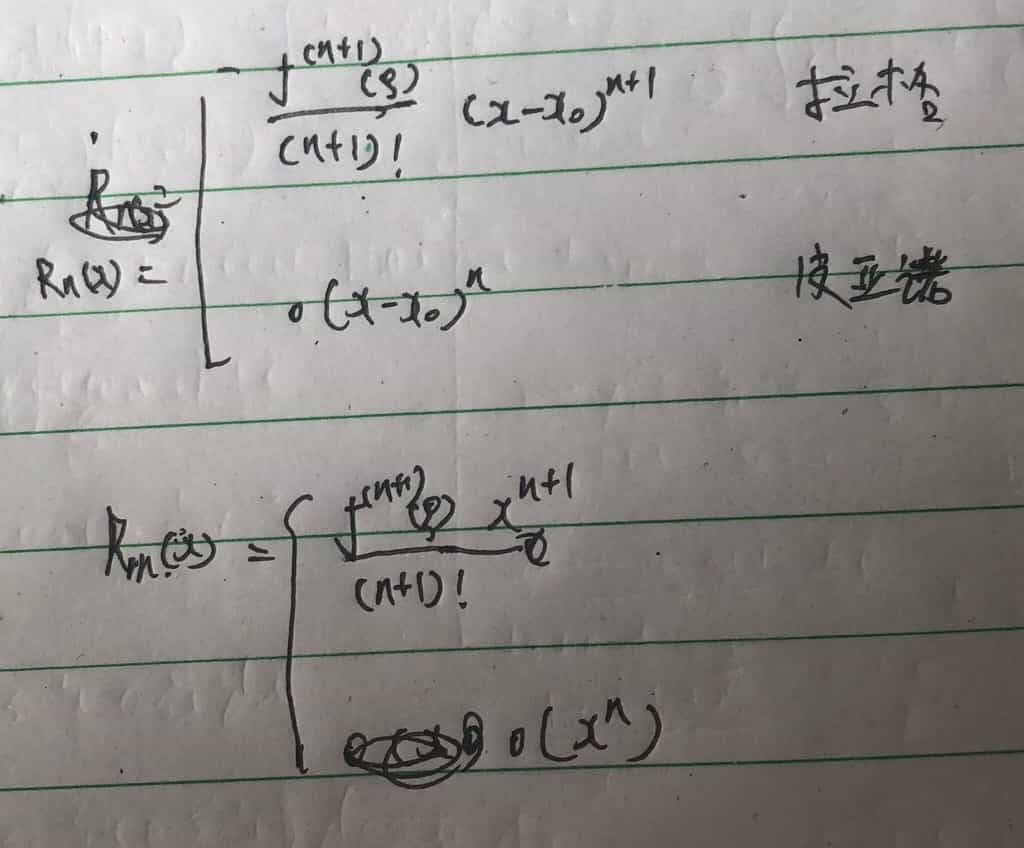 f^{(n+1)}(ξ) / (n+1)! (x-x₀)^{n+1} 拉格
Rn(x) =
o(x-x₀)^n 皮亚诺
Rn(x) = f^{(n+1)}(ξ) x^{n+1} / (n+1)!
o(x^n)